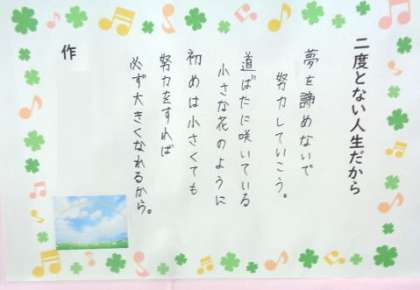 二度とない人生だから
夢を諦めないで
努力していこう。
道ばたに咲いている
小さな花のように
初めは小さくても
努力をすれば
必ず大きくなれるから。
作